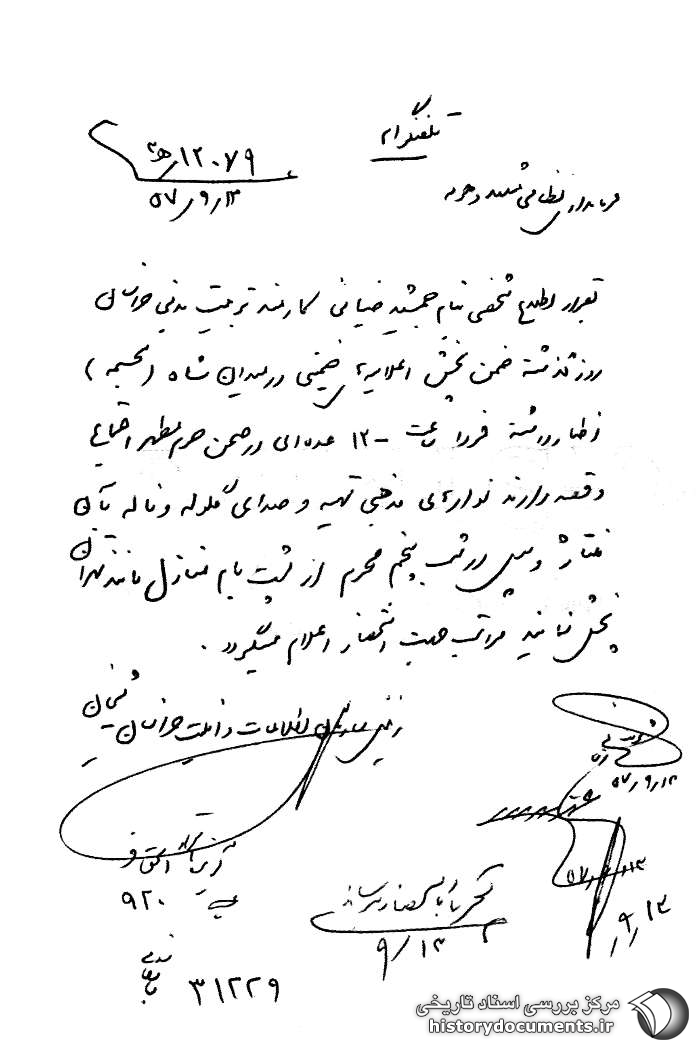 تلفنگرام
۱۲۰۷۹/ﻫ۳
۵۷/۹/۱۳
فرمانداری نظامی مشهد و حومه
بقرار اطلاع شخصی بنام جمشید ضیائی کارمند تربیت بدنی خراسان
روز گذشته ضمن پخش اعلامیه‌ی خمینی در میدان شاه (مجسمه)
اظهار داشته فردا ساعت ۱۳۰۰ عده‌ای در صحن حرم مطهر اجتماع
و قصد دارند نوارهای مذهبی تهیه و صدای گلوله و ناله بآن
مونتاژ و سپس در شب پنجم محرم از پشت بام منازل مانند تهران
پخش نمایند مراتب جهت استحضار اعلام میگردد.
رئیس سازمان اطلاعات و امنیت خراسان
۵۷/۹/۱۳
۵۷/۹/۱۳
۹/۱۳
۹۲۰
۹/۱۳
۳۱۲۲۹
مرکز بررسی اسناد تاریخی
historydocuments.ir